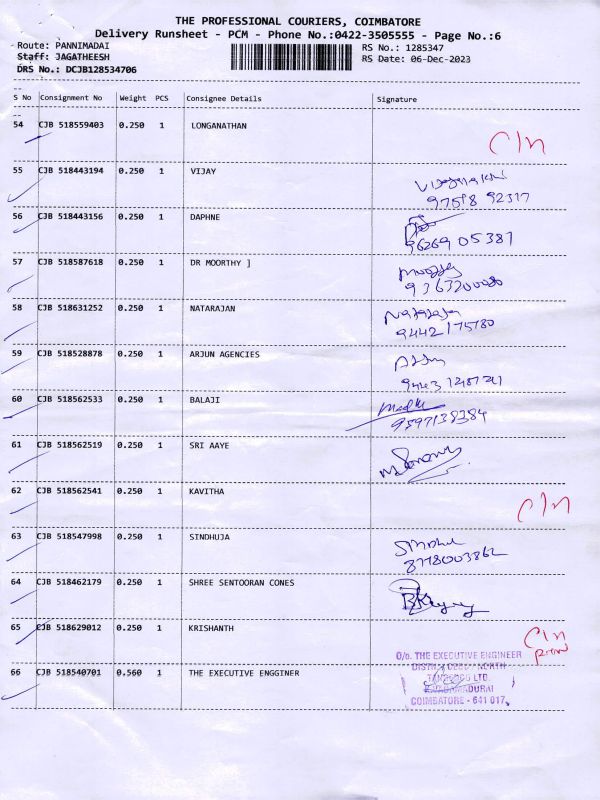 THE PROFESSIONAL COURIERS, COIMBATORE
Delivery Runsheet - PCM - Phone No.:0422-3505555 - Page No.:6
Route: PANNIMADAI
RS No.: 1285347
Staff: JAGATHEESH
RS Date: 06-Dec-2023
DRS No.: DCJB128534706
S No Consignment No Weight PCS Consignee Details Signature
54 CJB 518559403 0.250 1 LONGANATHAN
C/n
55 CJB 518443194 0.250 1 VIJAY
97518 92317
56 CJB 518443156 0.250 1 DAPHNE
96269 05381
57 CJB 518587618 0.250 1 DR MOORTHY ]
9363200080
58 CJB 518631252 0.250 1 NATARAJAN
Natarajan
9442175780
59 CJB 518528878 0.250 1 ARJUN AGENCIES
60 CJB 518562533 0.250 1 BALAJI
9597138384
61 CJB 518562519 0.250 1 SRI AAYE
62 CJB 518562541 0.250 1 KAVITHA
C/n
63 CJB 518547998 0.250 1 SINDHUJA
8778003862
64 CJB 518462179 0.250 1 SHREE SENTOORAN CONES
65 CJB 518629012 0.250 1 KRISHANTH
C/n
O/o. THE EXECUTIVE ENGINEER
66 CJB 518540701 0.560 1 THE EXECUTIVE ENGGINER
LTD.
COIMBATORE - 641 017.